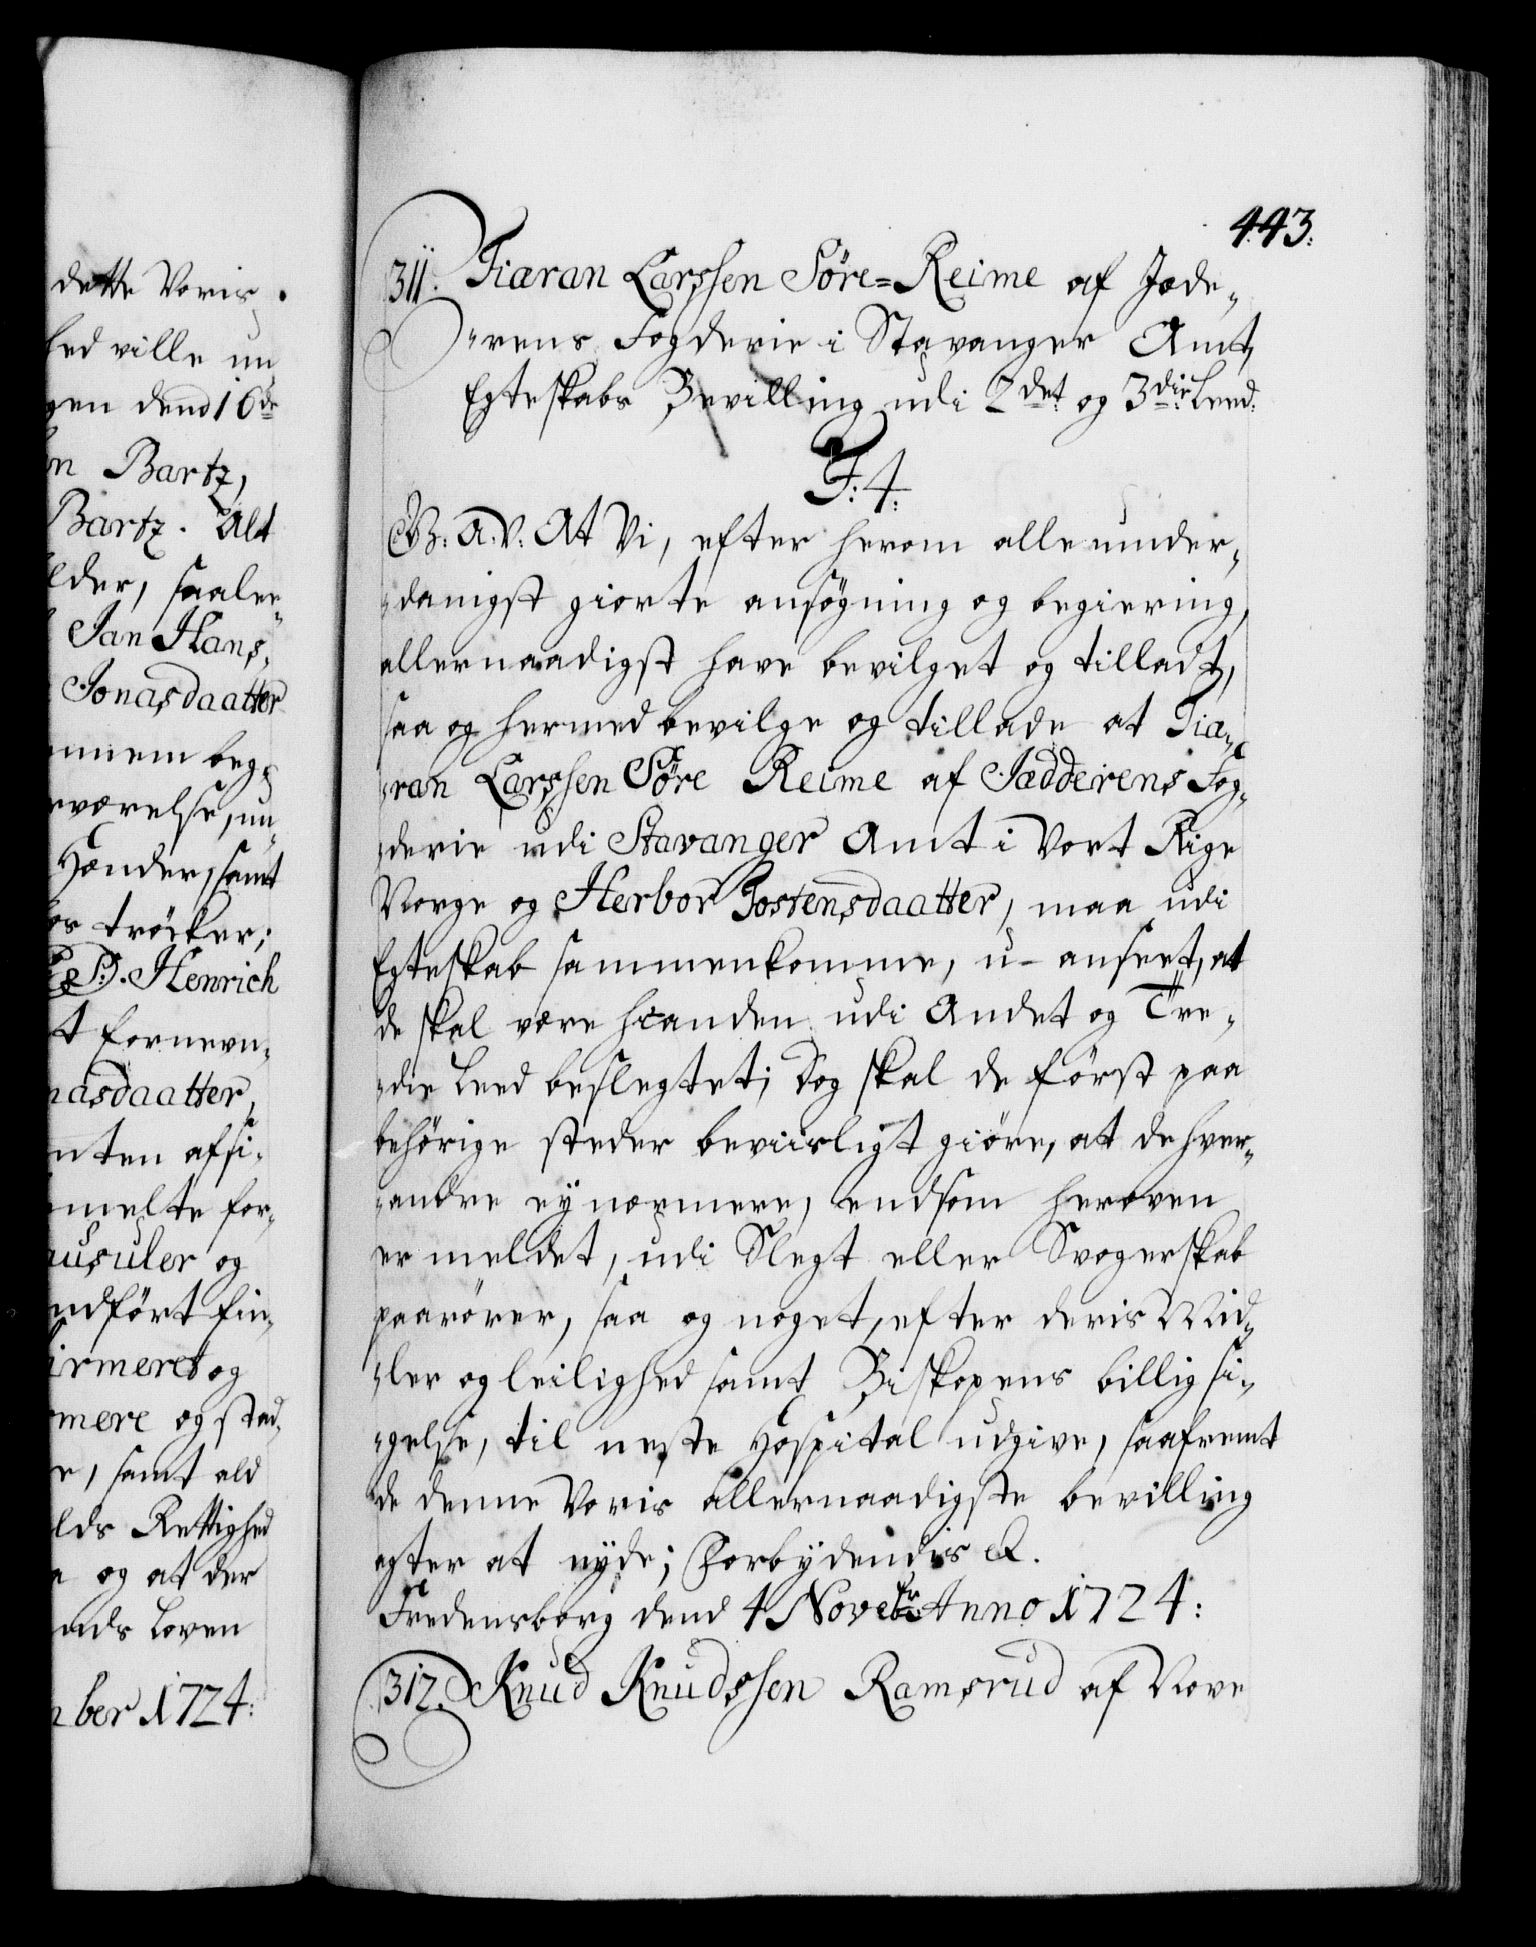 dette Voris
hed ville un
gen dend 16de
on Bartz,
Bartz. Alt
lder, saalee„
Jan Hans„
Jonasdaatter
nnem beg„
rværelse, un„
Hænder, samt
os trÿcker;
S. Henrich
t fornevn„
nasdaatter,
nten afsi„
melte for„
ausuler og
ndført fin„
irmeret og
mere og stad„
e, samt ald
lds Rettighed
a og at der
ands Loven
mber 1724:
443.
311. Tiaran Larssen Söre=Reime af Jæde„
„rens Fogderie i Stavanger Amt,
Egteskabs Bevilling udi 2det og 3die Leed.
F: 4.
G: A. V: At Vi, efter herom allerunder„
„danigst giorte ansøgning og begiering,
allernaadigst have bevilget og tilladt,
saa og hermed bevilge og tillade at Tia„
„ran Larssen Söre Reime af Jædderens Fog„
„derie udi Stavanger Amt i Vort Rige
Norge og Herbor Jostensdaatter, maa udi
Egteskab sammenkomme, u-anseet, at
de skal være hianden udi Andet og Tre„
„die Leed beslegtet; Dog skal de først paa
behörige steder beviisligt giöre, at de hver„
„andre eÿ nærmere, endsom heroven
er meldet, udi Slegt eller Svogerskab
paarörer, saa og noget, efter deris Mid„
„ler og leilighed samt Biskopens billig si„
„gelse, til neste Hospital udgive, saafremt
de denne Voris allernaadigste bevilling
agter at nÿde; Forbÿdendis &.
Fredensborg dend 4 Novebr. Anno 1724:
312. Knud Knudssen Ramsrud af Nore